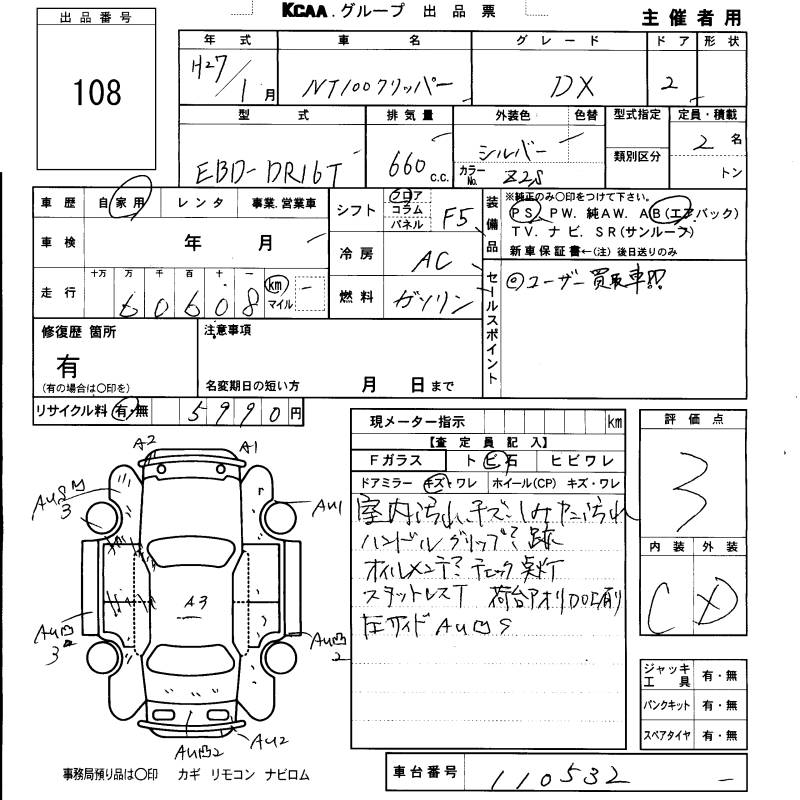 KCAA.グループ 出品票
主催者用
出品番号
108
年式 車名 グレード ドア 形状
H27/1月 NT100クリッパー DX 2
型式 排気量 外装色 色替 型式指定 定員・積載
類別区分
EBD-DR16T 660c.c. シルバー カラーNo. Z2S 2名
トン
車歴 自家用 レンタ 事業.営業車
車検 年 月
走行 十万 万 千 百 十 一
60608 km マイル
シフト フロア コラム パネル F5
冷房 AC
燃料 ガソリン
装備品
※純正のみ〇印をつけて下さい。
PS PW. 純AW. AB(エアバック)
TV. ナビ. SR(サンルーフ)
新車保証書←(注)後日送りのみ
セールスポイント
◎ユーザー買取車!!
修復歴 箇所
有
(有の場合は〇印を)
注意事項
名変期日の短い方 月 日まで
リサイクル料 有・無 5990円
現メーター指示 km
【査定員記入】
Fガラス トビ石 ヒビワレ
ドアミラー キズ・ワレ ホイール(CP) キズ・ワレ
室内汚れ、キズ、シミヤニ汚れ
ハンドルグリップ?跡
オイルメンテ? チェック点灯
スタットレスT 荷台アオリ
左サイドAU凹S
評価点
3
内装 外装
C D
ジャッキ工具 有・無
パンクキット 有・無
スペアタイヤ 有・無
A2 A1
AU凹 3
AU1
A3
AU凹 3
AU凹 2
AU凹2 AU2
事務局預り品は〇印 カギ リモコン ナビロム
車台番号 110532 -